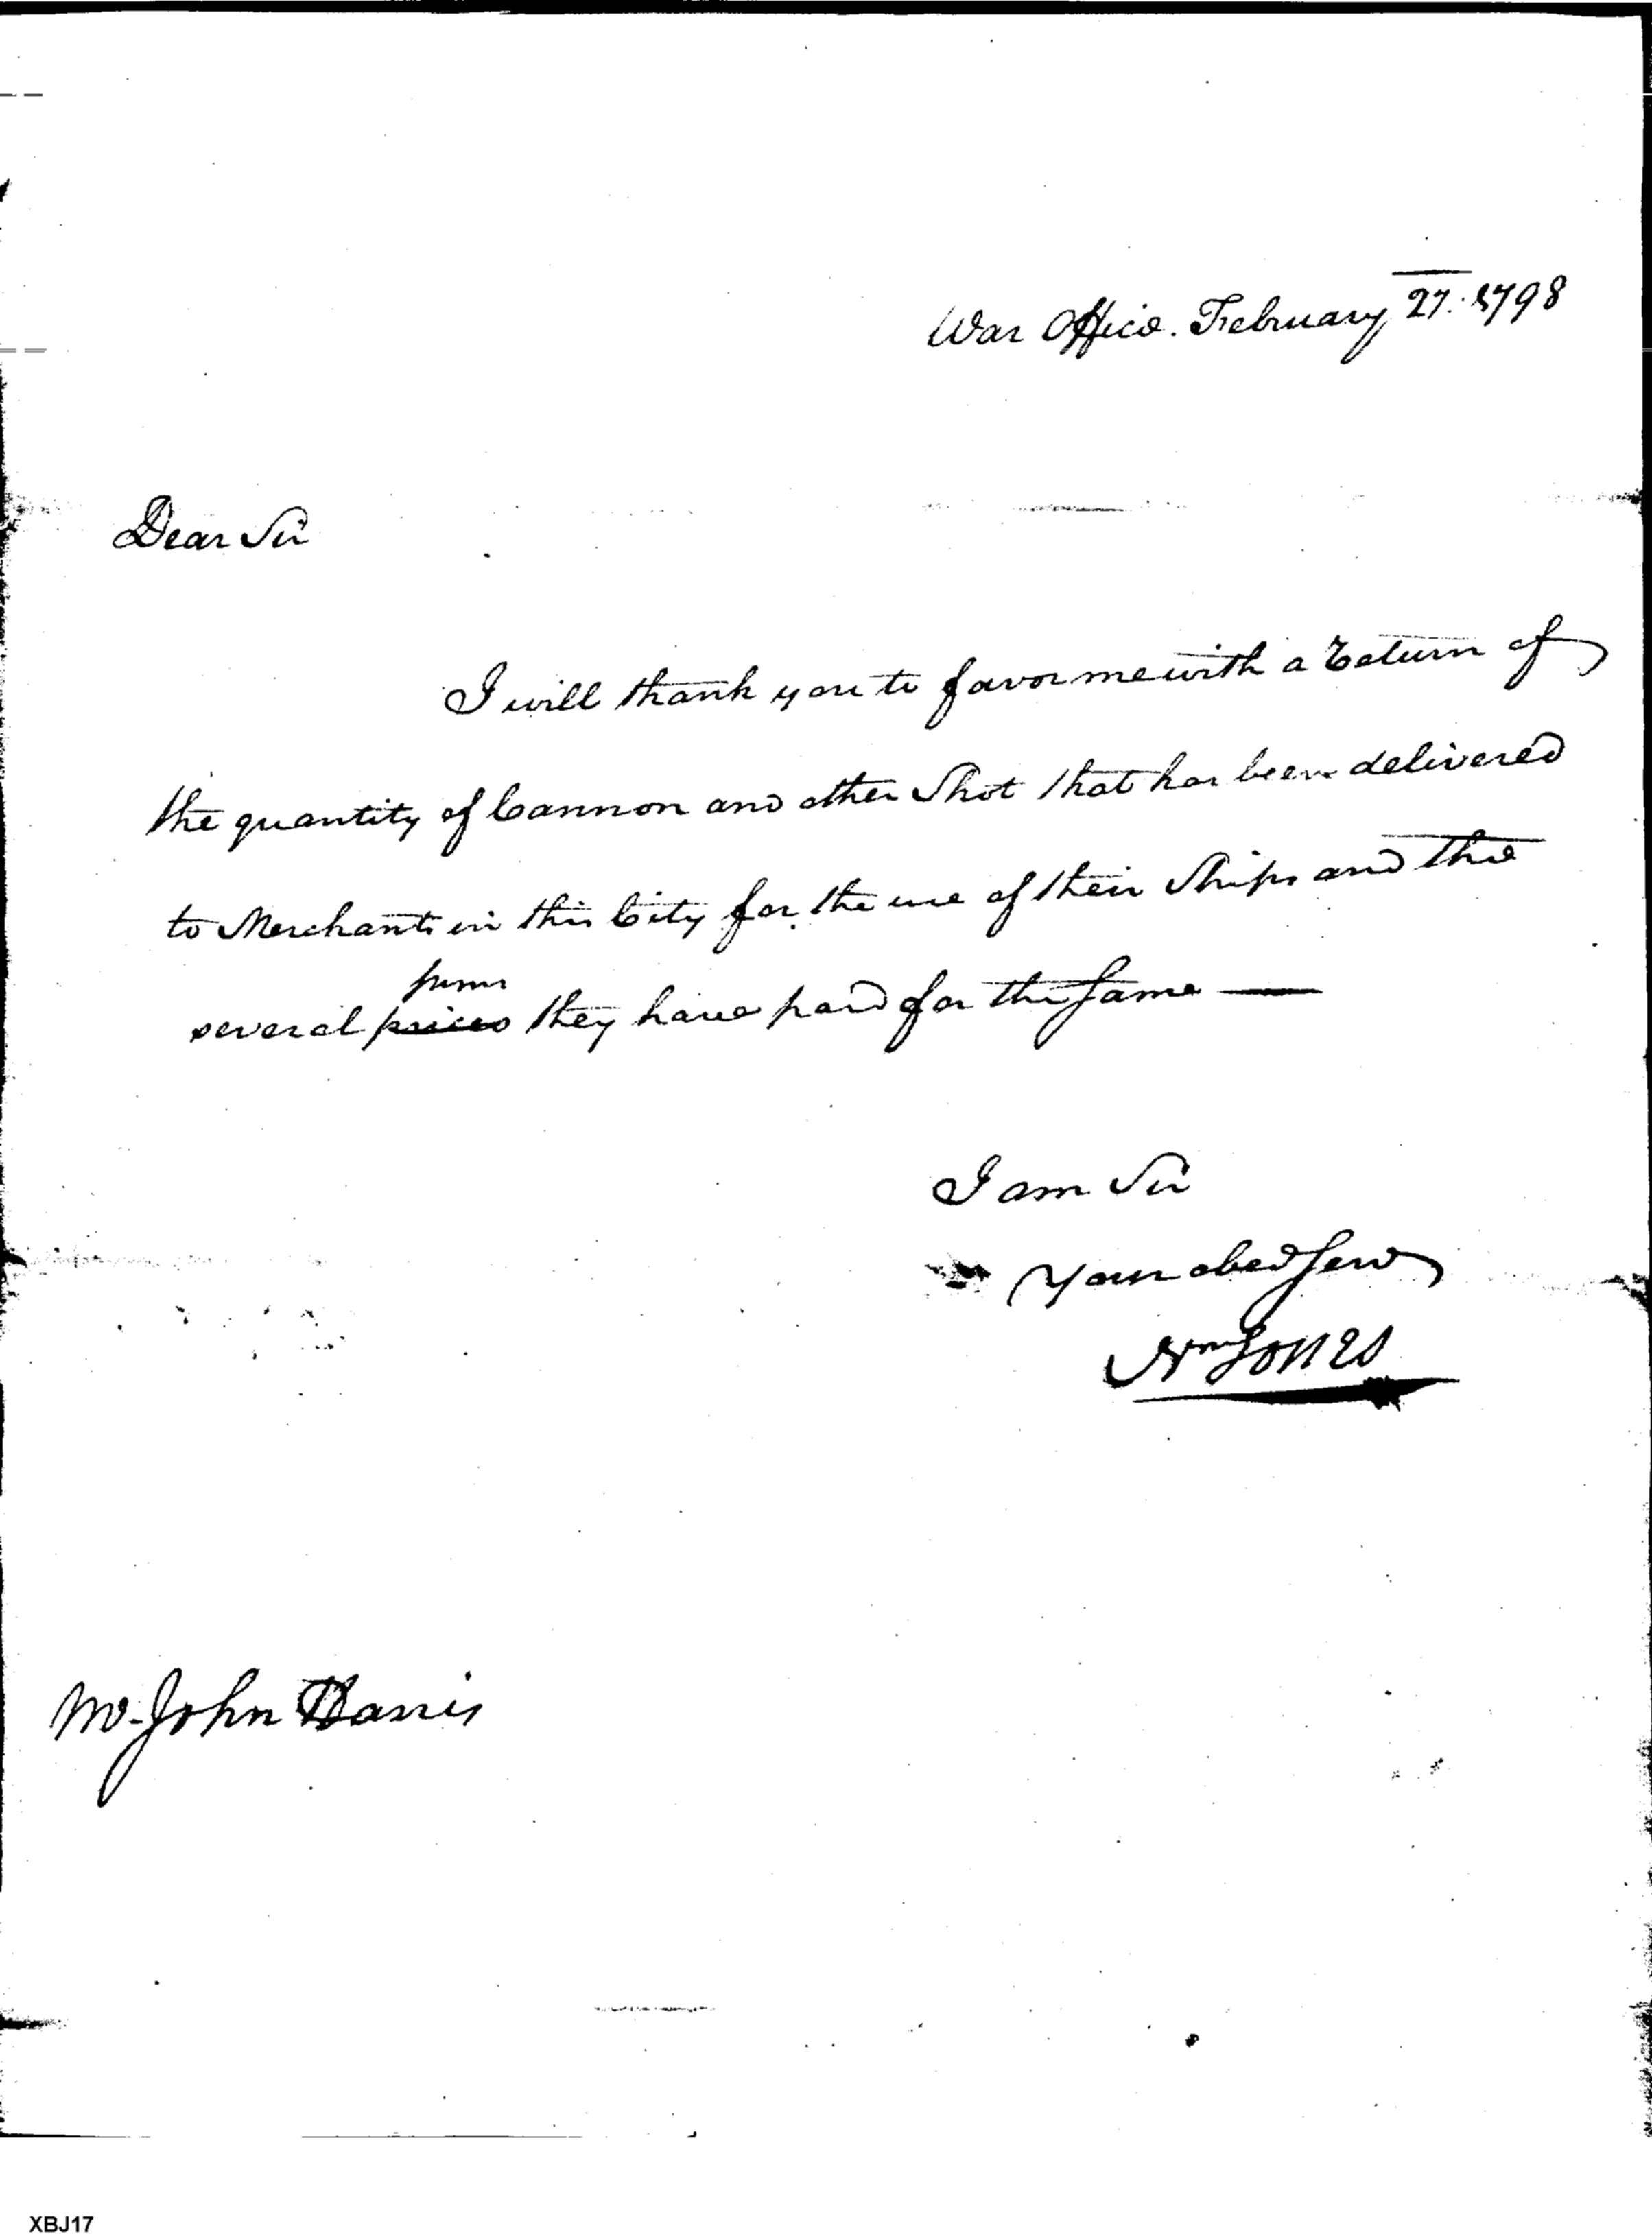 War Office. February 27. 1798
Dear Sir
I will thank you to favor me with a Return of
the quantity of Cannon and other Shot that has been delivered
to Merchants in this City for the use of their Ships and the
sums
several prices they have paid for the same —
I am Sir
Your obed Serv
Wm Jones
Mr. John Harris
XBJ17